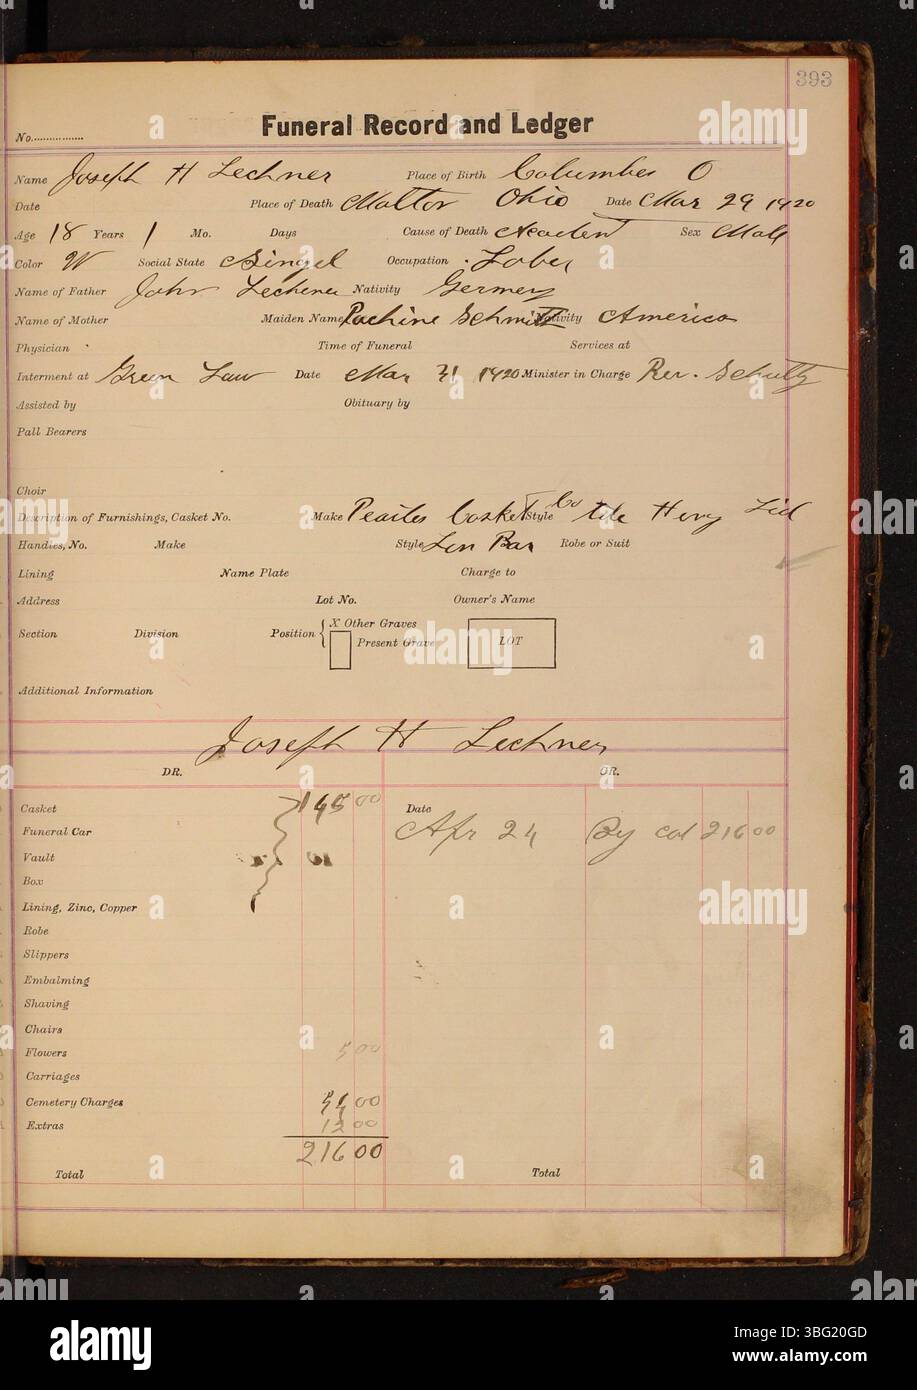 393
No.
Funeral Record and Ledger
Name Joseph H Lechner Place of Birth Columbus O
Date Place of Death Ohio Date Mar 29 1920
Age 18 Years 1 Mo. Days Cause of Death Sex
Color W Social State Occupation
Name of Father John Nativity
Name of Mother Maiden Name Nativity America
Physician Time of Funeral Services at
Interment at Green Law Date Mar 31 1920 Minister in Charge Rev.
Assisted by Obituary by
Pall Bearers
Choir
Description of Furnishings, Casket No. Make Casket Co Style Lid
Handles, No. Make Style Bar Robe or Suit
Lining Name Plate Charge to
Address Lot No. Owner's Name
Section Division Position X Other Graves
Present Grave LOT
Additional Information
Joseph H Lechner
DR. CR.
Casket 145 00 Date
Funeral Car Apr 24 By 216 00
Vault
Box
Lining, Zinc, Copper
Robe
Slippers
Embalming
Shaving
Chairs
Flowers 5 00
Carriages
Cemetery Charges 54 00
Extras 12 00
216 00
Total Total
alamy
Image ID: 3BG20GD
www.alamy.com